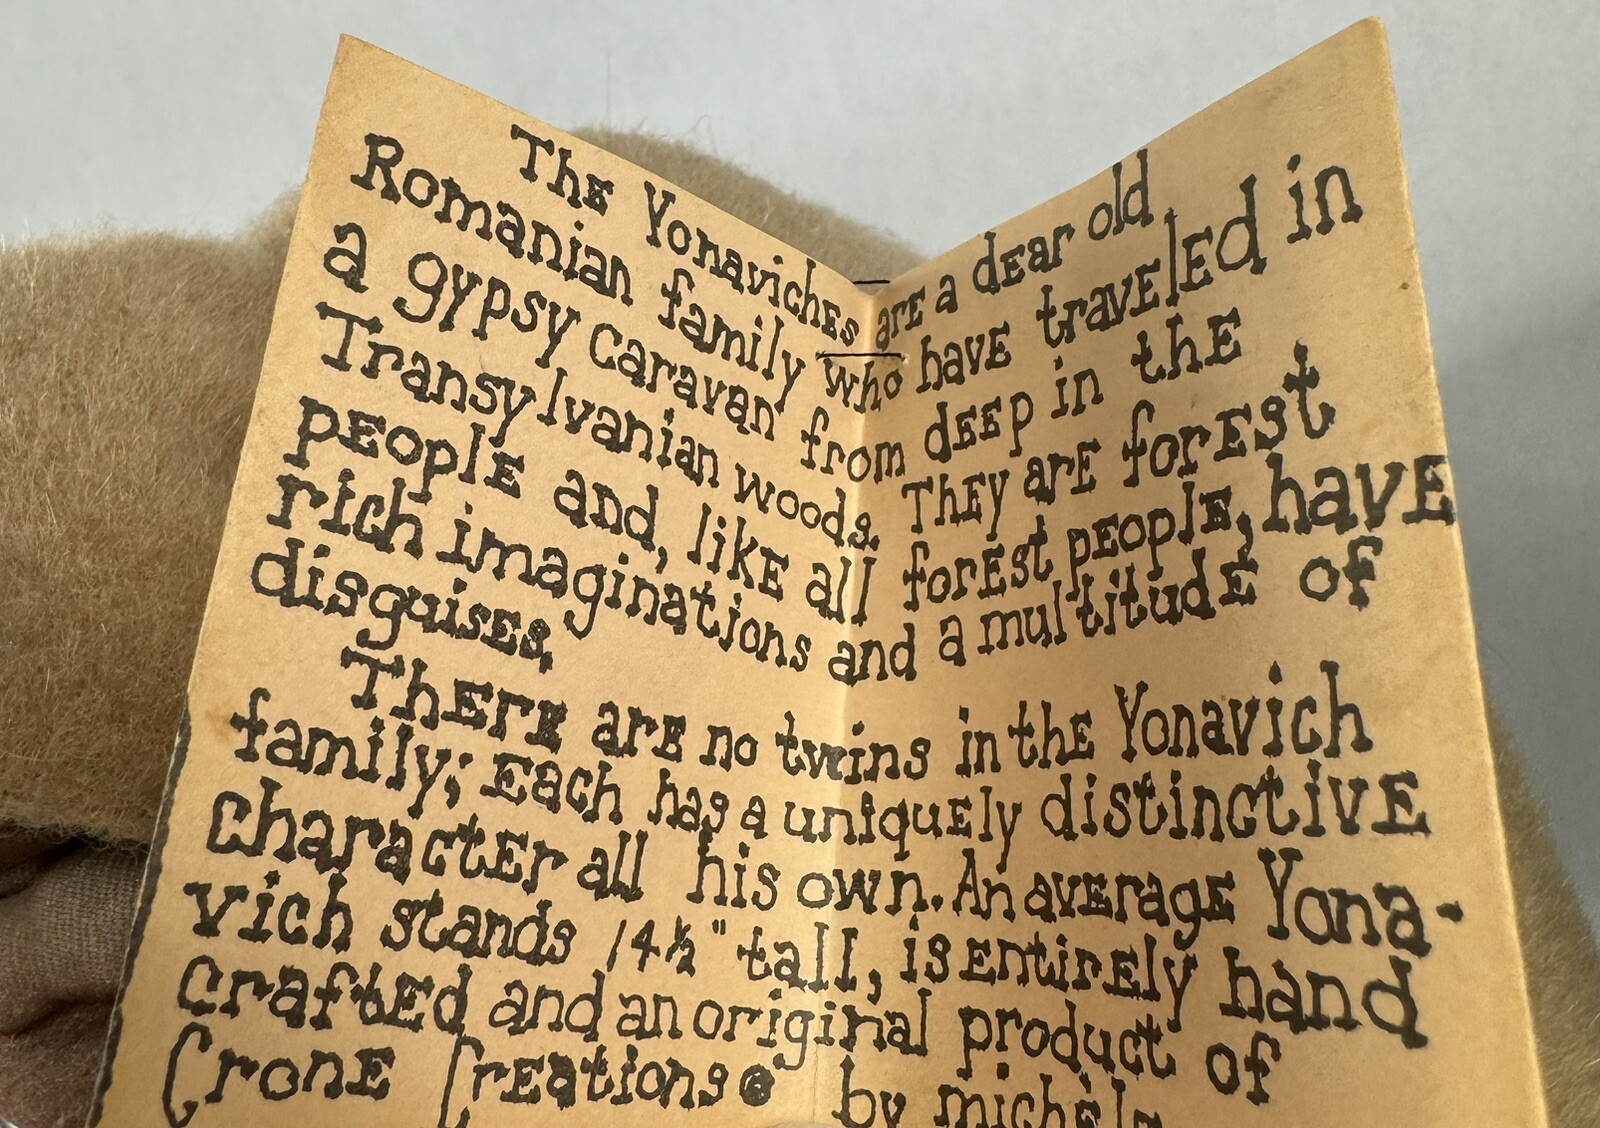 The Yonaviches are a dear old
Romanian family who have traveled in
a gypsy caravan from deep in the
Transylvanian woods. They are forest
people and, like all forest people, have
rich imaginations and a multitude of
disguises.
There are no twins in the Yonavich
family; Each has a uniquely distinctive
character all his own. An average Yona-
vich stands 14½" tall, is entirely hand
crafted and an original product of
Crone Creations© by michele